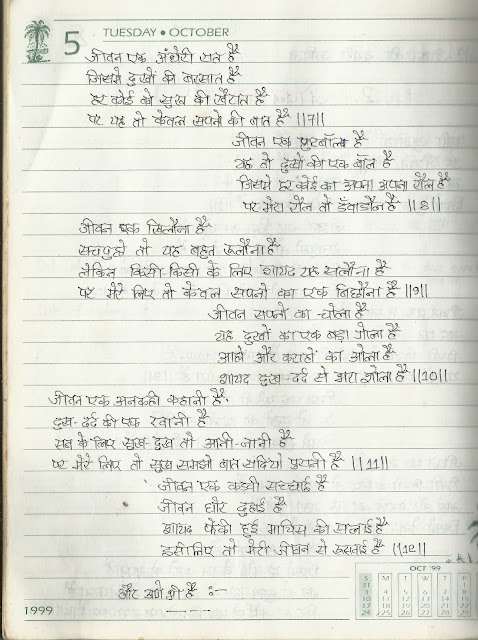 5 TUESDAY • OCTOBER
जीवन एक अंधेरी रात है
जिसमे दुखों की बरसात है
हर कोई को सुख की खैरात है
पर यह तो केवल सपने की बात है ||7||
जीवन एक फुटबॉल है
यह तो दुखों की एक बॉल है
जिसमे हर कोई का अपना अपना रौल है
पर मेरा रौल तो डँवाडौल है ||8||
जीवन एक खिलौना है
सचपुछो तो यह बहुत रूलौना है
लेकिन किसी-किसी के लिए शायद यह सलौना है
पर मेरे लिए तो केवल सपनो का एक बिछौना है ||9||
जीवन सपनो का चोला है
यह दुखों का एक बड़ा गोला है
आहो और कराहों का ओला है
शायद दुख-दर्द से भरा झोला है ||10||
जीवन एक अनकही कहानी है
दुख-दर्द की एक रवानी है
सब के लिए सुख-दुख तो आनी-जानी है
पर मेरे लिए तो सुख समझो बात सदियो पुरानी है ||11||
जीवन एक कड़वी सच्चाई है
जीवन घोर दुहाई है
शायद फेंकी हुई माचिस की सलाई है
इसीलिए तो मेरी जीवन से रूसवाई है ||12||
और आगे भी है :-
1999
OCT '99
S M T W T F S
31
3 4 5 6 7 8 9
10 11 12 13 14 15 16
17 18 19 20 21 22 23
24 25 26 27 28 29 30